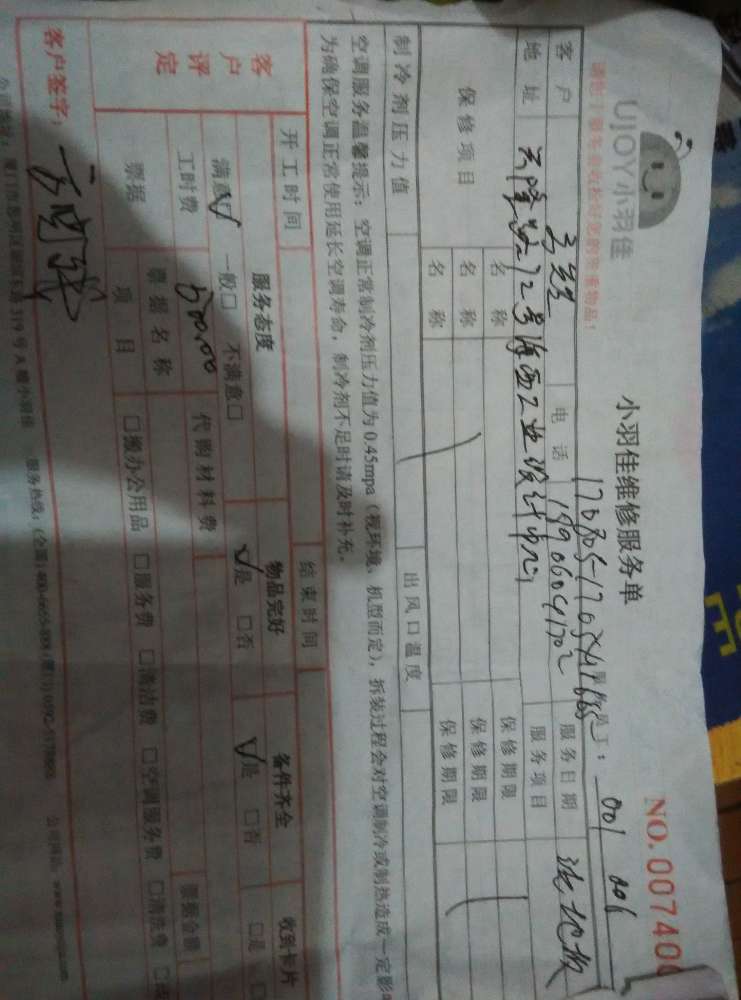 UJOY小羽佳
小羽佳维修服务单
NO.007400
请您事先收拾好您的贵重物品!
170805-170341665
员工: 001 006
客户
电话 18906041702
服务日期
地址 72号海西工业设计中心
服务项目 洗地板
保修项目
名称 保修期限
名称 保修期限
名称 保修期限
制冷剂压力值 出风口温度
空调服务温馨提示:空调正常制冷剂压力值为0.45mpa(视环境、机型而定),拆装过程会对空调制冷或制热造成一定影响
为确保空调正常使用延长空调寿命,制冷剂不足时请及时补充。
开工时间 结束时间
客户评定
服务态度 物品完好 备件齐全 收到卡片
满意☑ 一般□ 不满意□ ☑是 □否 ☑是 □否 □是 □
工时费 500.00 代购材料费
票据 票据名称 票据金额
项目 □搬办公用品 □服务费 □清洁费 □空调服务费 □清洗费
客户签字:
319号A幢小羽佳 服务热线: